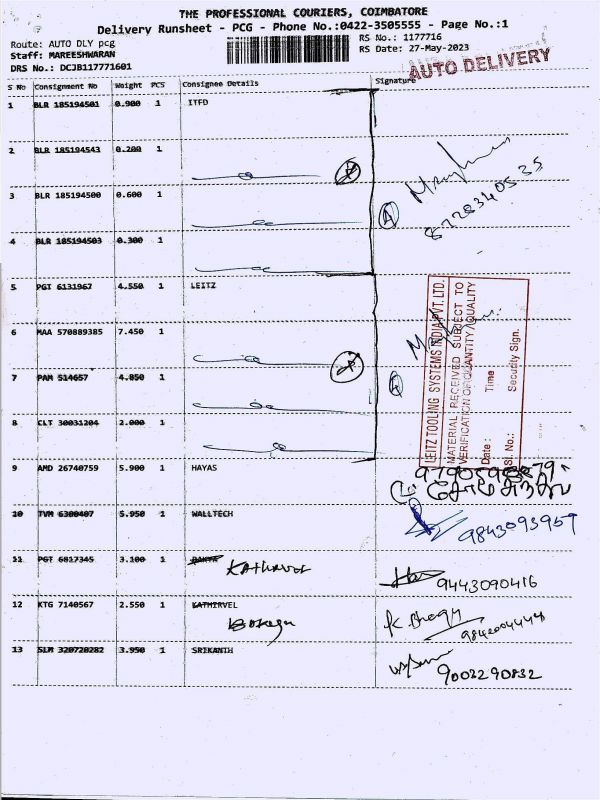 THE PROFESSIONAL COURIERS, COIMBATORE
Delivery Runsheet - PCG - Phone No.:0422-3505555 - Page No.:1
Route: AUTO DLY pcg
RS No.: 1177716
Staff: MAREESHWARAN
RS Date: 27-May-2023
DRS No.: DCJB117771601
AUTO DELIVERY
S No Consignment No Weight PCS Consignee Details Signature
1 BLR 185194501 0.900 1 ITFD
2 BLR 185194543 0.200 1
3 BLR 185194500 0.600 1
8728340535
4 BLR 185194503 0.300 1
5 PGT 6131967 4.550 1 LEITZ
6 MAA 570889385 7.450 1
7 PAM 514657 4.050 1
8 CLT 30031204 2.000 1
LEITZ TOOLING SYSTEMS INDIA PVT. LTD.
MATERIAL RECEIVED SUBJECT TO
VERIFICATION OR QUANTITY/QUALITY
Date : Time
Sl. No.: Security Sign.
9 AMD 26740759 5.900 1 HAYAS
10 TVM 6300407 5.950 1 WALLTECH
9843093959
11 PGT 6017345 3.100 1 Kathirvel
9443090416
12 KTG 7140567 2.550 1 KATHIRVEL
9842004448
13 SLM 320720282 3.950 1 SRIKANTH
9003290832